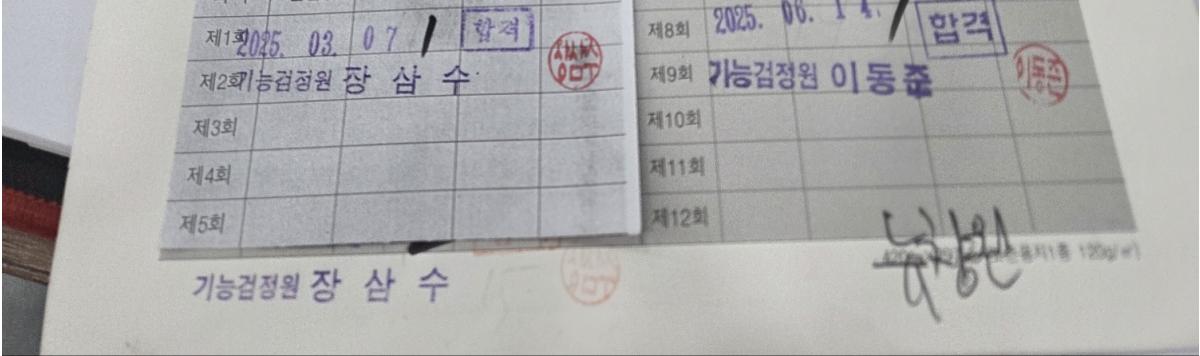 제1회 2025. 03. 07 합격
제2회 기능검정원 장 삼 수
제3회
제4회
제5회
기능검정원 장 삼 수
제8회 2025. 06. 14. 합격
제9회 기능검정원 이 동 준
제10회
제11회
제12회
용지1종 120g/㎡)